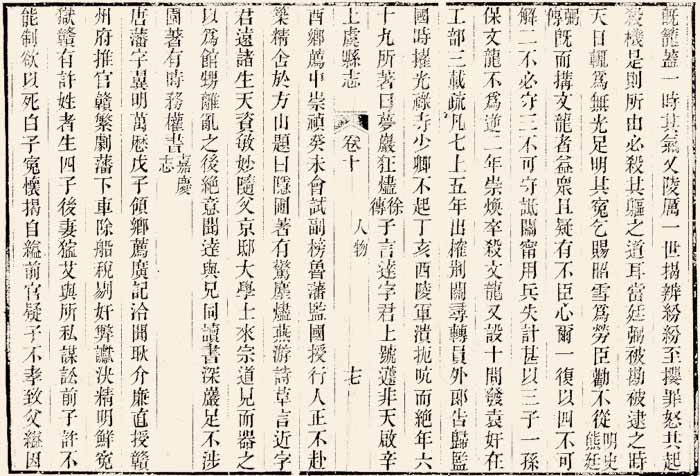 既籠蓋一時其氣又陵厲一世搨辨紛紛至攖罪怒其起
殺機是則所由必殺其軀之道耳當廷弼被勘被逮之時
天日輒為無光足明其冤乞賜昭雪為勞臣勸不從明史熊廷
弼傳既而搆文龍者益衆且疑有不臣心爾一復以四不可
解二不必守三不可守詆關甯用兵失計甚以三子一孫
保文龍不為逆二年崇煥卒殺文龍又設十問發袁奸在
工部三載疏凡七上五年出搉荊關尋轉員外郎告歸監
國時擢光祿寺少卿不起丁亥酉陵軍潰扼吭而絶年六
十九所著曰夢巖狂燼徐傳子言達字君上號蘧非天啟辛
上虞縣志 卷十 人物 七
酉鄉薦中崇禎癸未會試副榜魯藩監國授行人正不赴
築精舍於方山題曰隱圃著有驚塵燼燕游詩草言近字
君遠諸生天資敏妙隨父京邸大學士來宗道見而器之
以為館甥離亂之後絶意聞達與兄同讀書深巖足不涉
園著有時務權書嘉慶志
唐藩字翼明萬厯戊子領鄉薦廣記洽聞耿介廉直授贛
州府推官贛繁劇藩下車除船稅剔奸弊讞決精明鮮寃
獄贛有許姓者生四子後妻猛艾與所私謀訟前子許不
能制欲以死白子寃懷揭自縊前官疑子不孝致父縊因